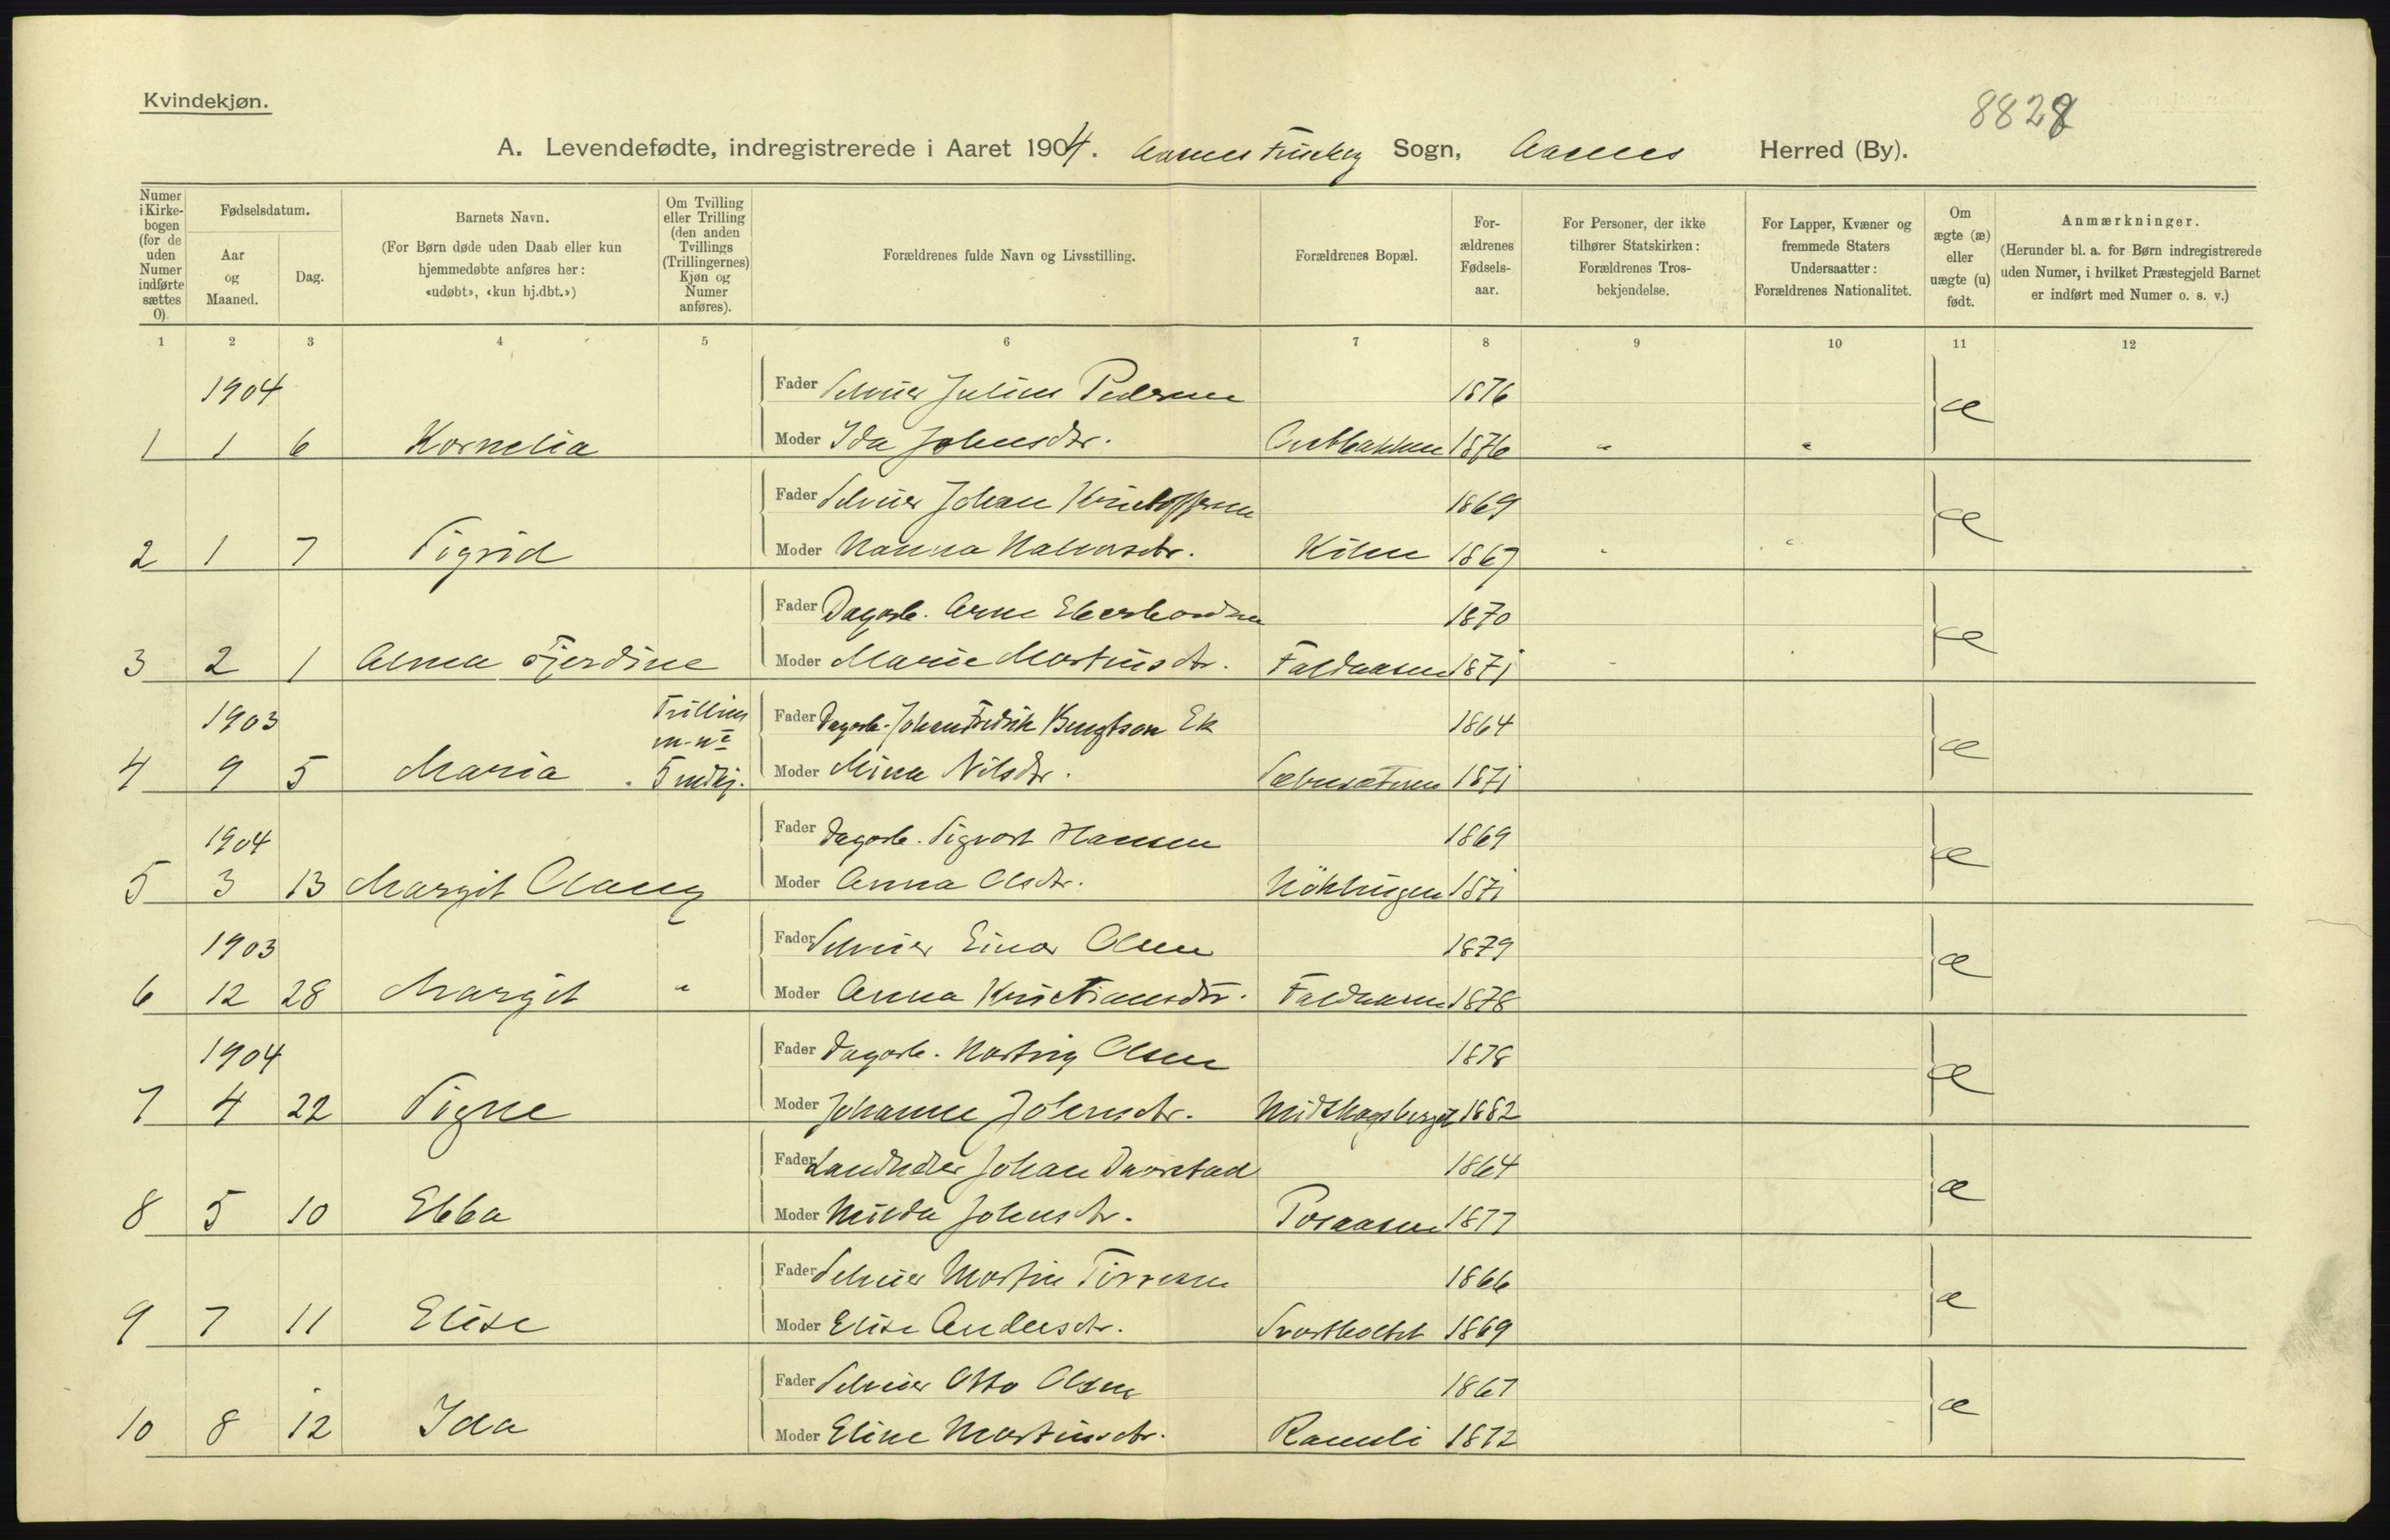 Kvindekjøn.
8828
A. Levendefødte, indregistrerede i Aaret 1904. Aasnes Finskog Sogn, Aasnes Herred (By).
Numer i Kirkebogen (for de uden Numer indførte sættes 0).
Fødselsdatum.
Aar og Maaned.
Dag.
Barnets Navn.
(For Børn døde uden Daab eller kun hjemmedøbte anføres her: «udøbt», «kun hj.dbt.»)
Om Tvilling eller Trilling (den anden Tvillings (Trillingernes) Kjøn og Numer anføres).
Forældrenes fulde Navn og Livsstilling.
Forældrenes Bopæl.
Forældrenes Fødselsaar.
For Personer, der ikke tilhører Statskirken: Forældrenes Trosbekjendelse.
For Lapper, Kvæner og fremmede Staters Undersaatter: Forældrenes Nationalitet.
Om ægte (æ) eller uægte (u) født.
Anmærkninger.
(Herunder bl. a. for Børn indregistrerede uden Numer, i hvilket Præstegjeld Barnet er indført med Numer o. s. v.)
1 2 3 4 5 6 7 8 9 10 11 12
1904 Fader Selveier Julius Pedersen 1876 æ
1 1 6 Kornelia Moder Ida Johnsdtr. 1876 " "
Fader Selveier Johan Kristoffersen 1869 æ
2 1 7 Sigrid Moder Hanna Halvorsdtr. Kilen 1867 " "
Fader Dagarb. Arne Eberhardsen 1870 æ
3 2 1 Alma Fjerdine Moder Marie Martinsdtr. Faldaasen 1871
1903 Fader Dagarb. Johan Fredrik Bengtson Ek 1864 æ
4 9 5 Maria Moder Mina Nilsdtr. 1871
1904 Fader Dagarb. Sigvart Hansen 1869 æ
5 3 13 Margit Moder Anna Olsdtr. 1871
1903 Fader Selveier Einar Olsen 1879 æ
6 12 28 Margit " Moder Anna Kristiansdtr. Faldaasen 1878
1904 Fader Dagarb. Hartvig Olsen 1878 æ
7 4 22 Signe Moder Johanne Johnsdtr. Midtskogsberget 1882
Fader Landhdler Johan 1864 æ
8 5 10 Ebba Moder Hilda Johnsdtr. Posaasen 1877
Fader Selveier Martin 1866 æ
9 7 11 Elise Moder Elise Andersdtr. Svartholtet 1869
Fader Selveier Otto Olsen 1867 æ
10 8 12 Ida Moder Eline Martinsdtr. Ramsli 1872